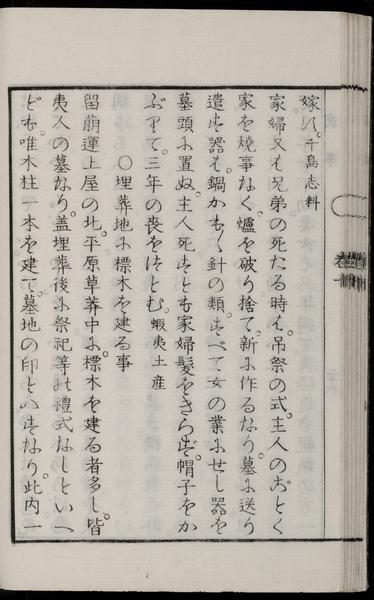 嫁ス。千島志料
家婦又は兄弟の死たる時も。吊祭の式。主人のおとく
家を焼事なく。爐を破り捨て。新に作るなり。墓に送り
遣す器も。鍋かも〱針の類。すべて女の業にせし器を
墓頭に置ぬ。主人死すとも家婦髪をきらず。帽子をか
ぶりて。三年の喪をはとむ。蝦夷土産
〇埋葬地に標木を建る事
留萠運上屋の北。平原草莽中に。標木を建る者多し。皆
夷人の墓なり。蓋埋葬後に祭祀等の禮式なしといへ
ども。唯木柱一本を建て。墓地の印といふなり。此内一